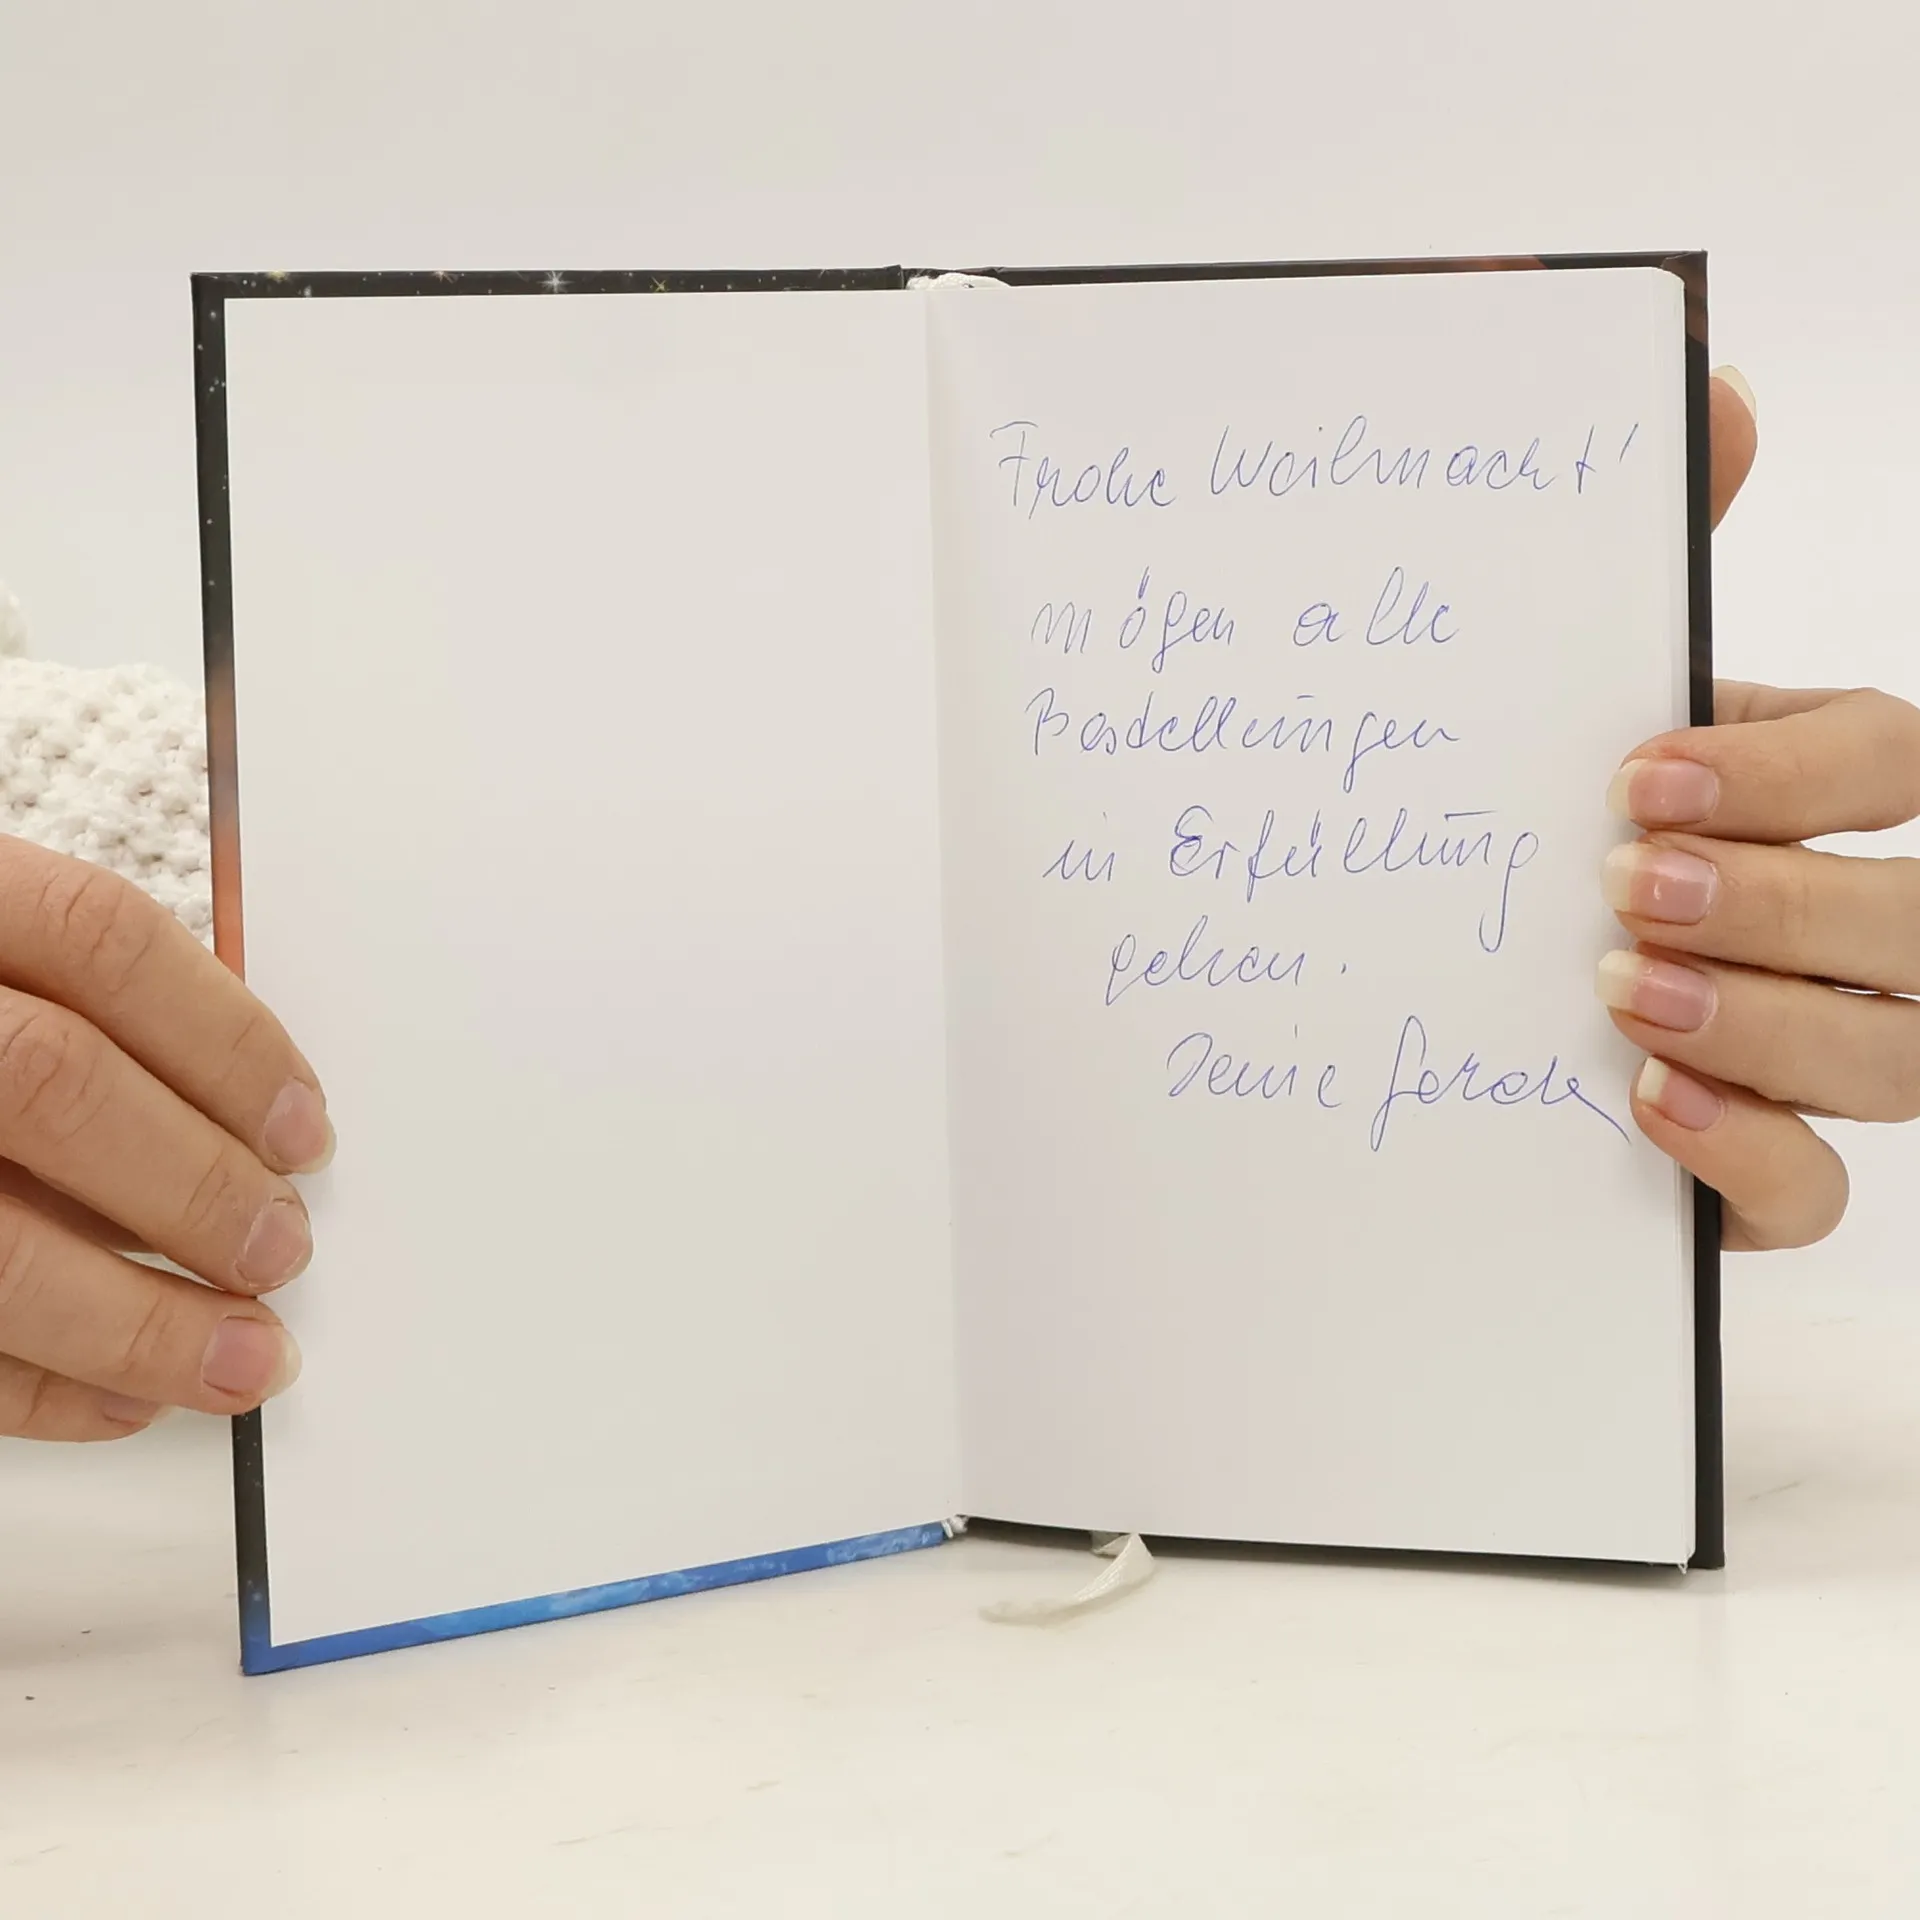 Frohe Weihnacht!
mögen alle
Bestellungen
in Erfüllung
gehen.
Deine Gerda